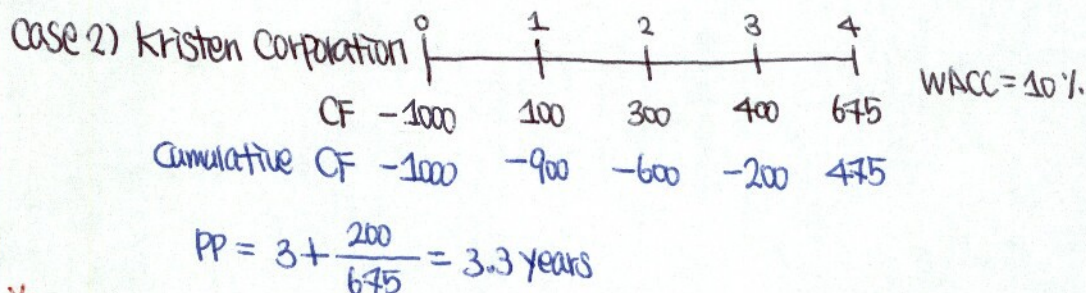 0 1 2 3 4
Case 2) Kristen Corporation
WACC = 10%.
CF -1000 100 300 400 675
Cumulative CF -1000 -900 -600 -200 475
PP = 3 + 200/675 = 3.3 years